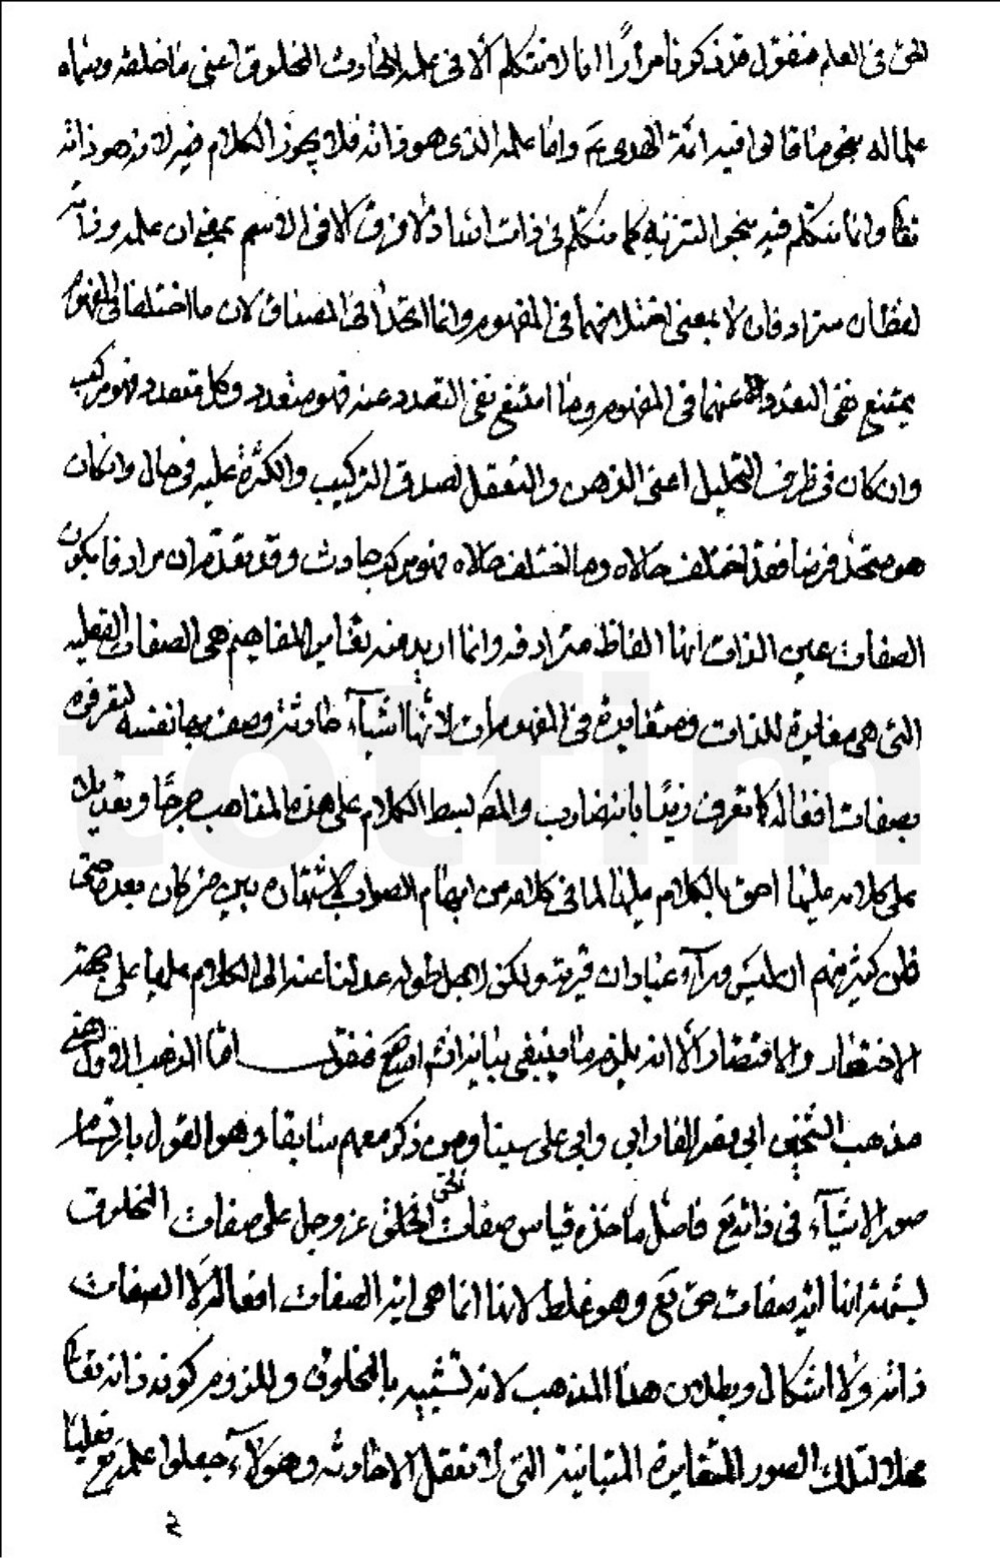 الحق في العلم فنقول قد ذكرنا مرارا انا لا نتكلم الا في علمه الحادث المخلوق اعني ما خلقه وسماه
علما له بنحو ما قالوا فيه ائمة الهدى ع واما علمه الذي هو ذاته فلا يجوز الكلام فيه لانه هو ذاته
تعا وانما نتكلم فيه بنحو التنزيه كما نتكلم في ذات الله اذ لا فرق الا في الاسم بمعنى ان علمه وذاته
لفظان مترادفان لا بمعنى اختلافهما في المفهوم وانما اتحدا في المصداق لان ما اختلفا في المفهوم
يمتنع نفى التعدد عنهما في المفهوم وما امتنع نفى التعدد عنه فهو متعدد وكل متعدد فهو مركب
وان كان في ظرف التحليل اعنى الذهن والتعقل لصدق التركيب والكثرة عليه في حال وان كان
هو متحد فرضا فقد اختلف حالاه وما اختلف حالاه فهو مركب حادث وقد تقدم ان مرادنا بكون
الصفات عين الذات انها الفاظ مترادفه وانما اريد منه تغاير المفاهيم هي الصفات الفعليه
التي هي مغايرة للذات ومتغايرة في المفهومات لانها اشيآء حادثة وصف بها نفسه ليعرفوه
بصفات افعاله كما تعرف زيدا بانه ضارب والمص بسط الكلام على هذه المذاهب جرحا وتعديلا
على كلامه عليها احق بالكلام عليها لما في كلامه من ايهام الصواب لاشتهاره بين من كان بعده حتى
ظن كثير منهم ان ليس ورآء عبادان قرية ولكن لاجل طوله عدلنا عنه الى الكلام عليها على جهة
الاختصار والاقتصار الا انه يلزم ما ينبغي بيانه اذا صح فنقول اما المذهب الاول اعني
مذهب الشيخين ابي نصر الفارابي وابي على سينا ومن ذكر معهم سابقا وهو القول بارتسام
صور الاشيآء في ذاته تع فاصل ماخذه قياس صفات الحق الخالق عز وجل على صفات المخلوق
لشبهة انها اية صفات حق تع وهو غلط لانها انما هي اية الصفات افعاله لا الصفات
ذاته ولا اشكال في بطلان هذا المذهب لانه تشبيه بالمخلوق وللزوم كون ذاته تعا
محلا لتلك الصور المتغايرة المتباينة التي لا تعقل الا حادثه وهؤلآء جعلوا علمه تع فعليا